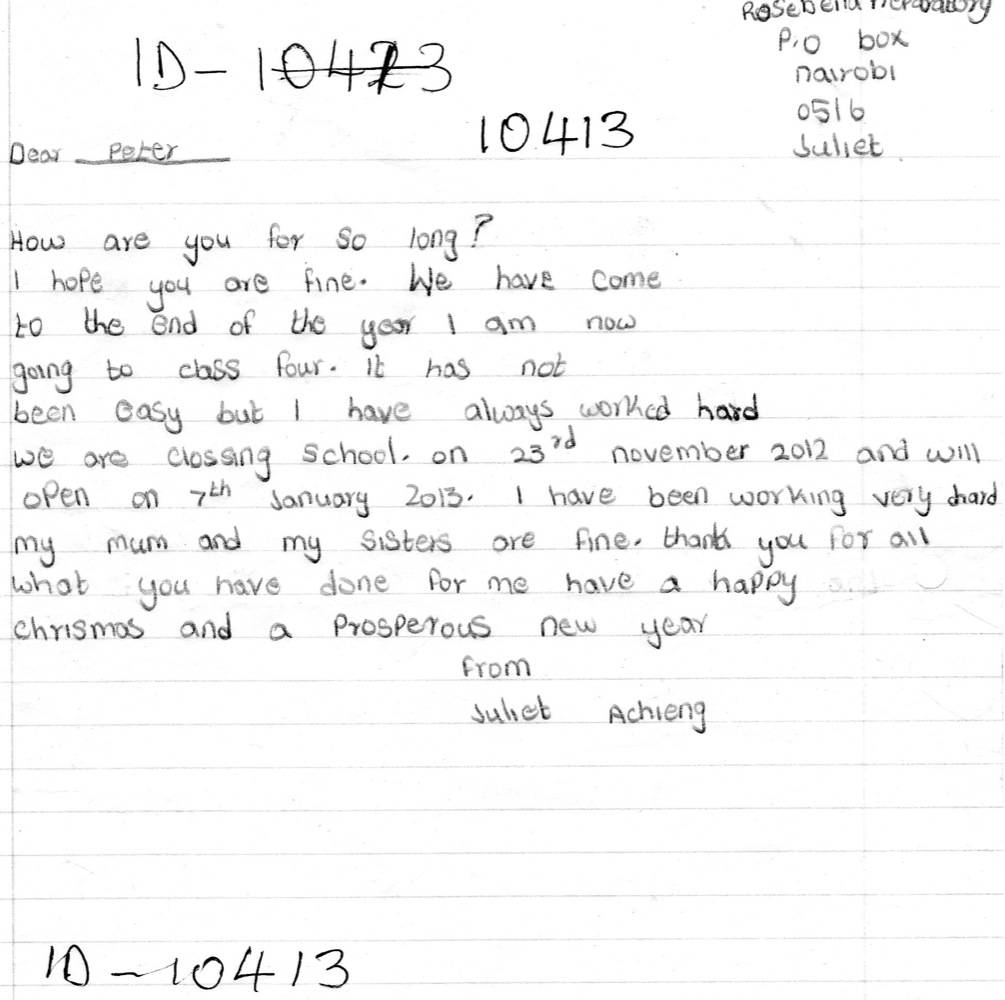 Preparatory
P.O box
nairobi
0516
Juliet
ID- 10423
10413
Dear Peter
How are you for so long?
I hope you are fine. We have come
to the end of the year I am now
going to class four. It has not
been easy but I have always worked hard
we are clossing school. on 23rd november 2012 and will
open on 7th January 2013. I have been working very hard
my mum and my sisters are fine. thank you for all
what you have done for me have a happy
chrismas and a Prosperous new year
From
Juliet Achieng
ID-10413